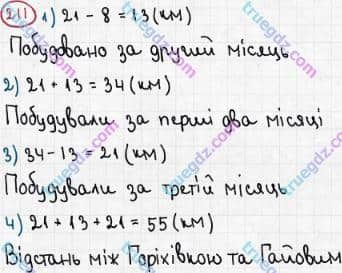 211 1) 21 - 8 = 13 (км)
Побудовано за другий місяць
2) 21 + 13 = 34 (км)
Побудували за перші два місяці
3) 34 - 13 = 21 (км)
Побудували за третій місяць
4) 21 + 13 + 21 = 55 (км)
Відстань між Горіхівкою та Гайовим